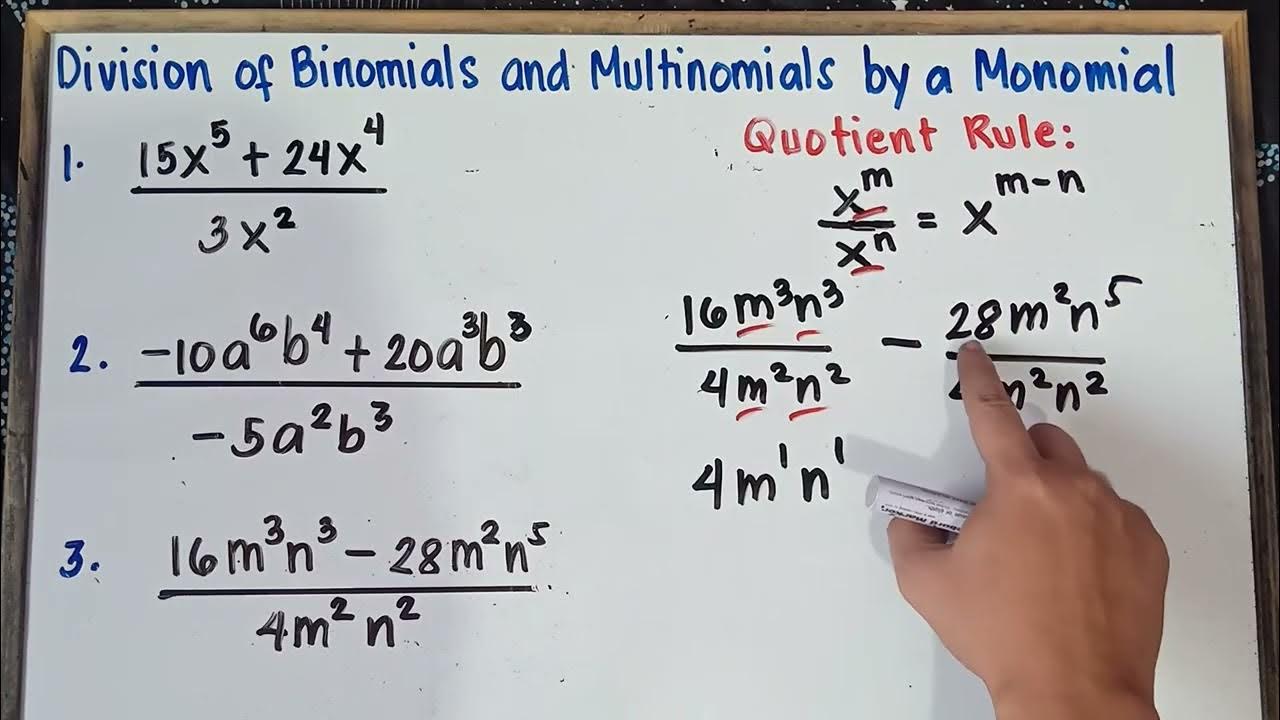 Division of Binomials and Multinomials by a Monomial
1. 15x⁵ + 24x⁴
3x²
2. -10a⁶b⁴ + 20a³b³
-5a²b³
3. 16m³n³ - 28m²n⁵
4m²n²
Quotient Rule:
xᵐ
xⁿ = xᵐ⁻ⁿ
16m³n³ - 28m²n⁵
4m²n² m²n²
4m¹n¹